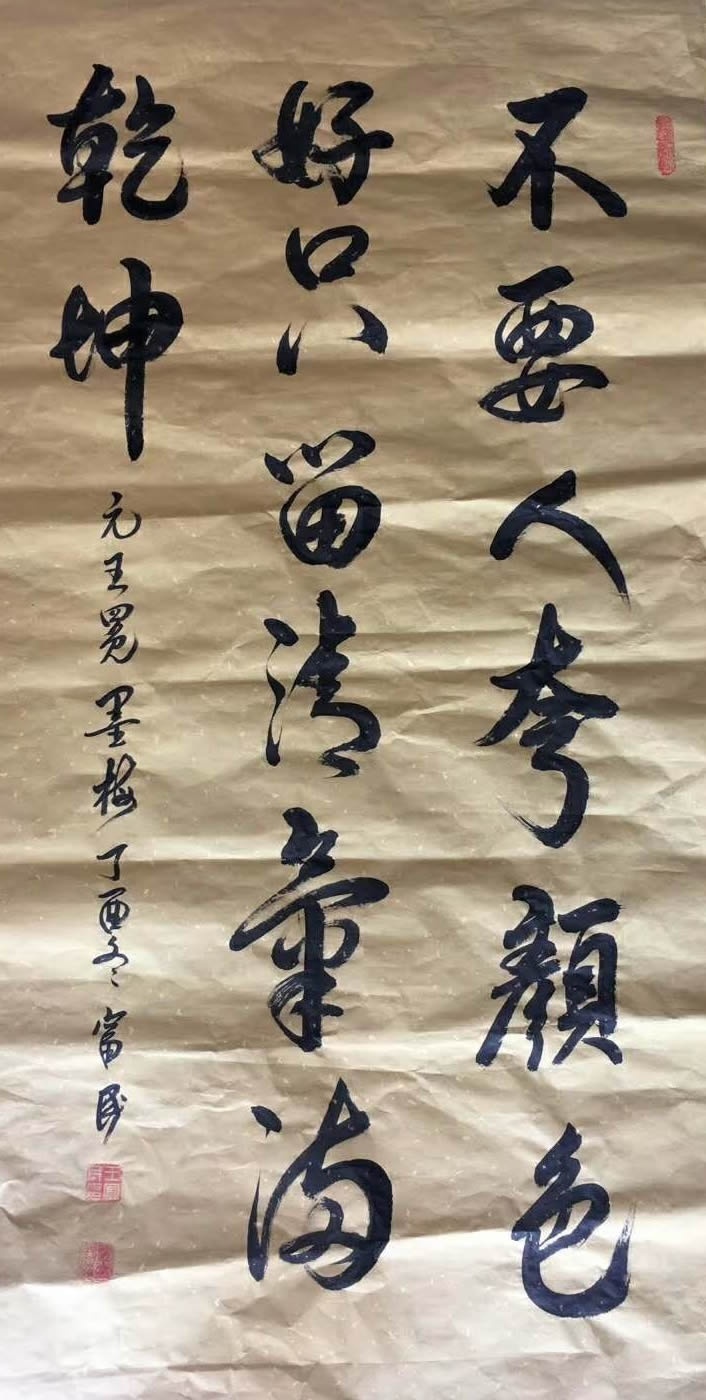 不要人夸顏色
好只留清氣滿
乾坤
元王冕墨梅丁酉冬富民